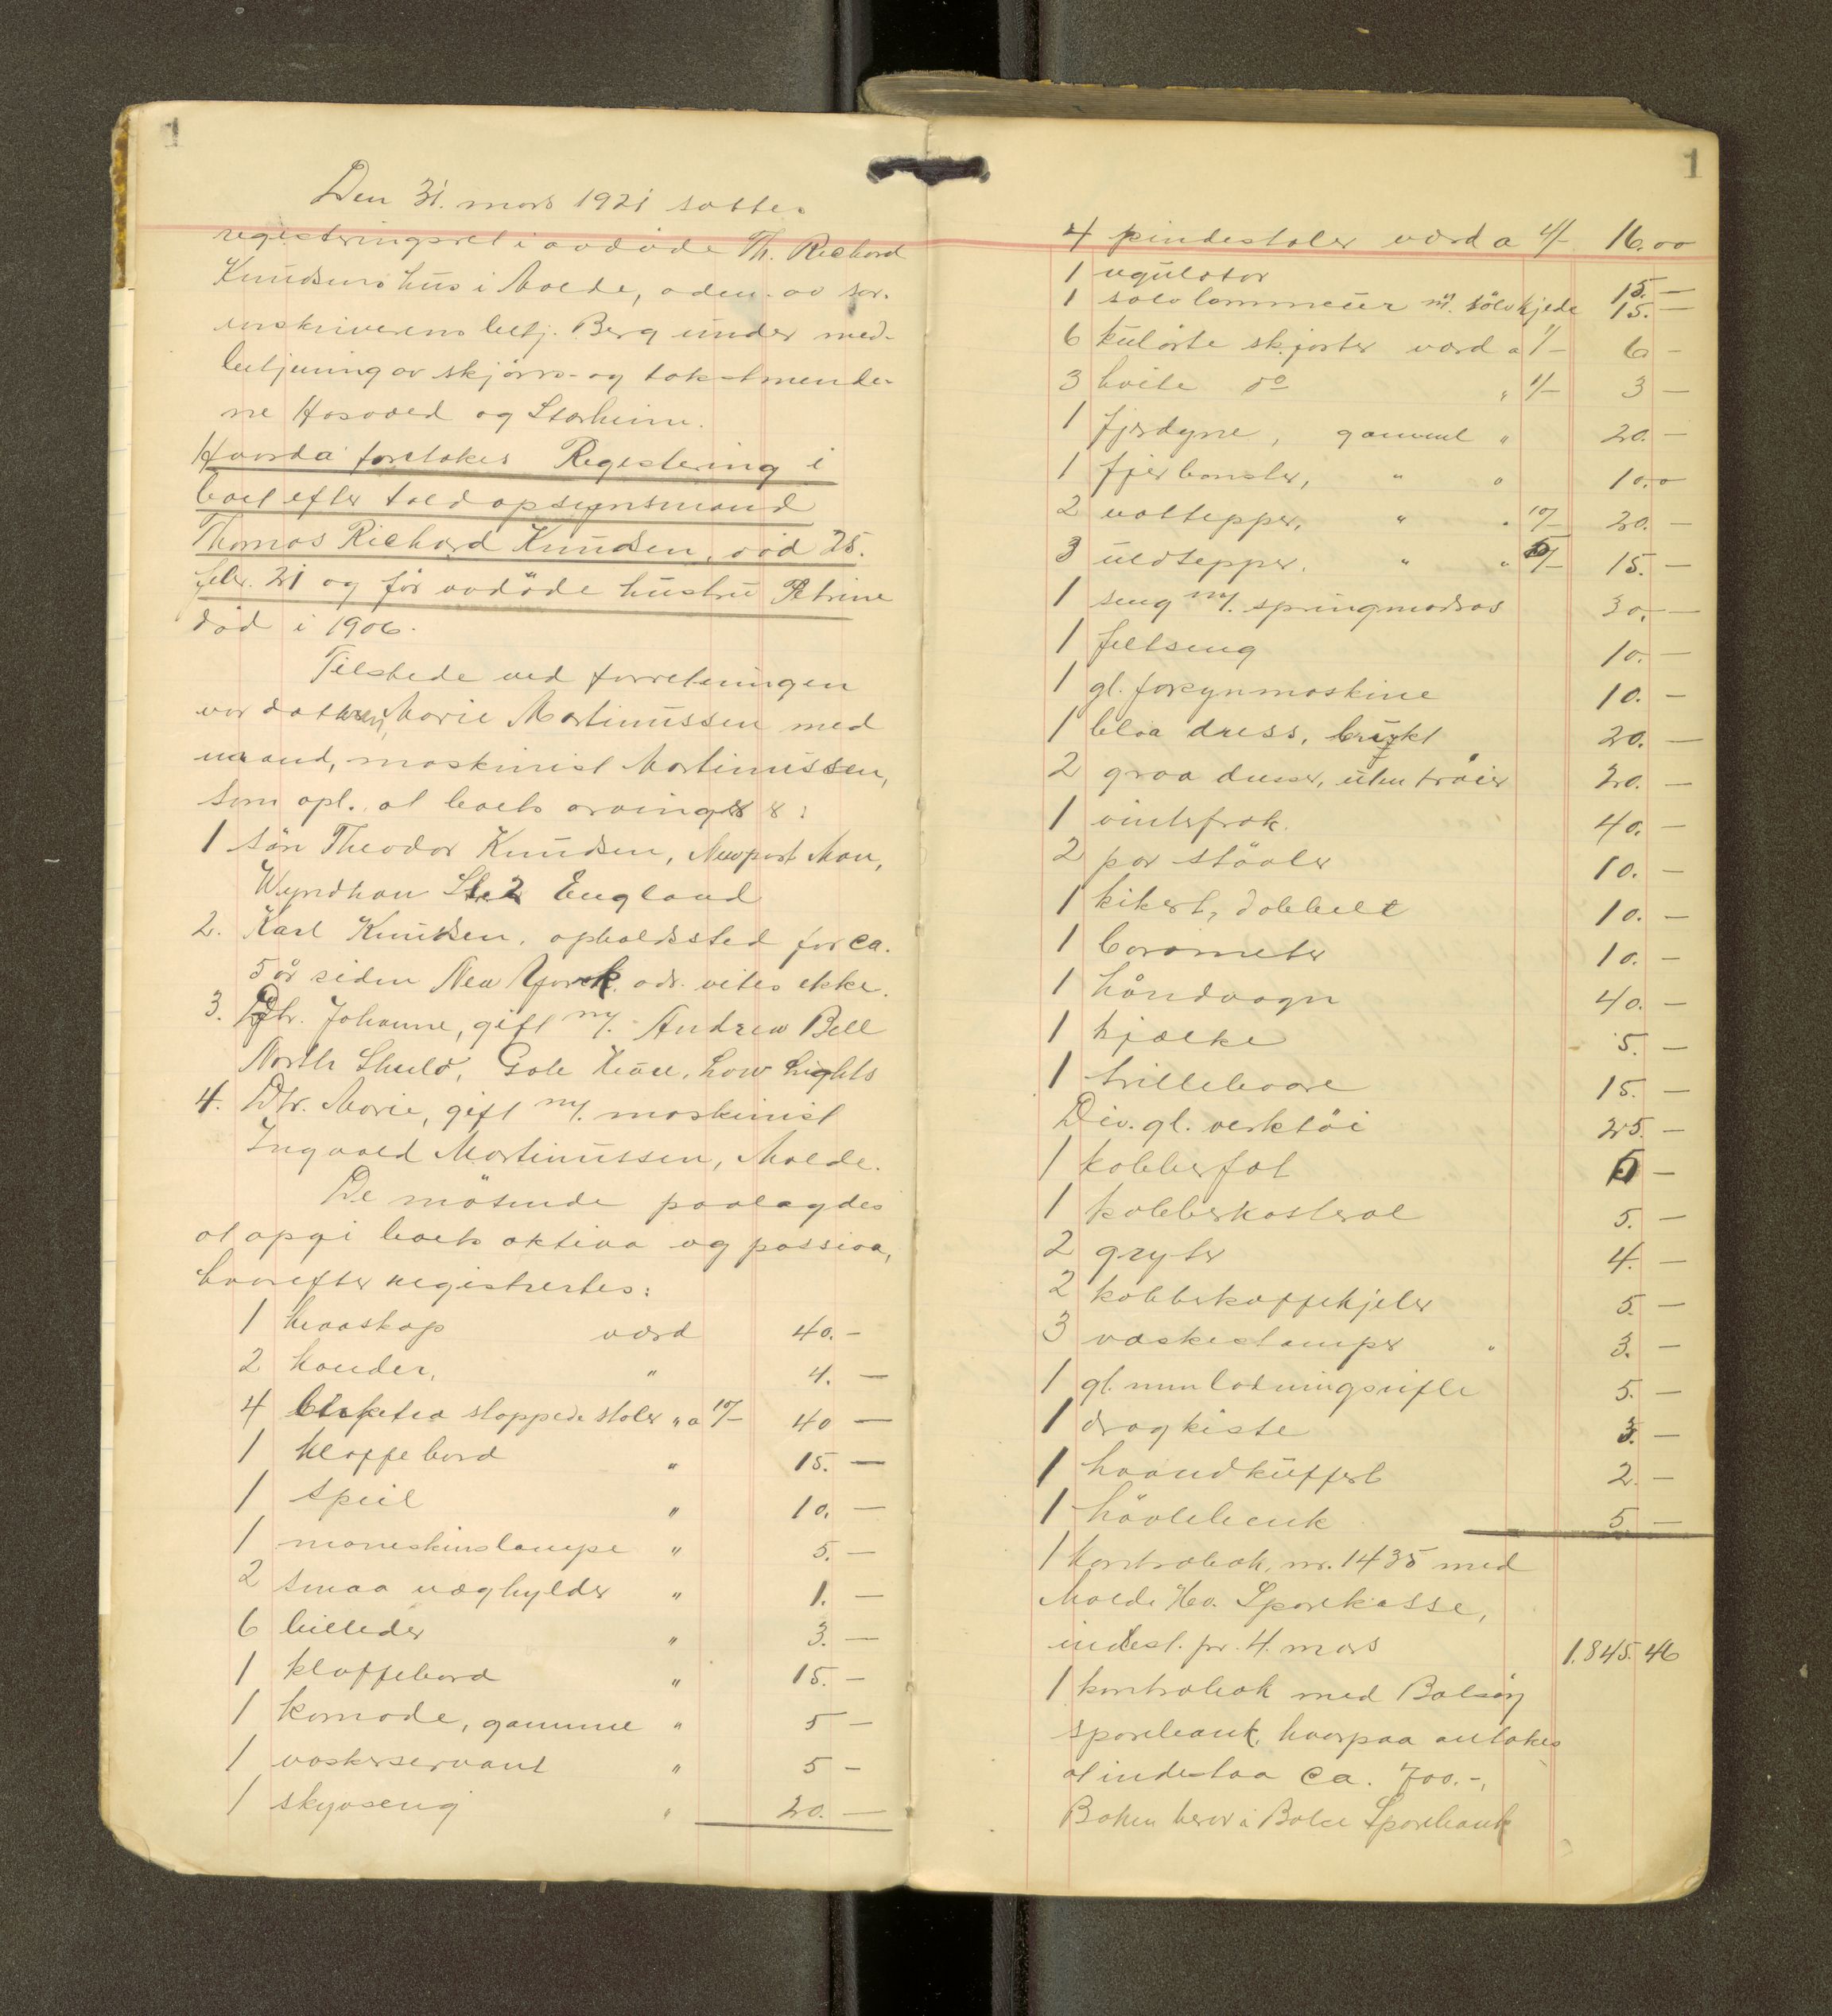 1
Den 31. mars 1921 sattes
registeringsret i avdøde Th. Richard
Knudsens hus i Molde, adm. av sor-
enskriverens betj. Berg under med-
betjening av skjøns- og takstmænde-
ne Hasvold og Storheim.
Hvorda foretokes Registering i
boet efter toldopsynsmand
Thomas Richard Knudsen, død 25.
febr. 21 og før avdöde hustru Petrine
död i 1906.
Tilstede ved forretningen
var datteren Marie Martinussen med
mand, maskinist Martinussen,
som opl. at boets arvinger er:
1 Sön Theodor Knudsen, Newport Mon,
Wyndham Str. 2 England
2. Karl Knudsen, opholdssted for ca.
5 år siden New York. adr. vites ikke.
3. Dtr. Johanne, gift m/. Andrew Bell
North Shield, Low Lights
4. Dtr. Marie, gift m/. maskinist
Ingvald Martinussen, Molde.
De mötende paalagdes
at opgi boets aktiva og passiva,
hvorefter registrertes:
1 klæskap værd 40.-
2 kander, " 4. —
4 stoppede stoler " a 10/- 40 —
1 klaffebord " 15. —
1 speil " 10. —
1 maaneskinslampe " 5. —
2 smaa væghylder " 1. —
6 billeder " 3. —
1 klaffebord " 15. —
1 komode, gammel " 5 —
1 vaskeservant " 5 —
1 skyvseng " 20. —
1
4 pindestoler værd a 4/- 16.00
1 regulator 15. —
1 sølvlommeur m. sölvkjede 15. —
6 kulörte skjorter værd a 1/- 6 -
3 hvite do " 1/- 3 —
1 fjærdyne, gammel " 20. —
1 fjærbonster, " " 10.00
2 vattepper, " " 10/- 20. —
3 uldtepper. " " 5/- 15. —
1 seng m/. springmadras 30. —
1 feltseng 10. —
1 gl. forsynmaskine 10. —
1 blaa dress, brukt 20. —
2 graa dresser, uten tröier 20. —
1 vinterfrak. 40. —
2 par stövler 10. —
1 kikert, dobbelt 10. —
1 barometer 10. —
1 håndvogn 40. —
1 kjælke 5. —
1 trillebaare 15. —
Div. gl. verktöi 25. —
1 kobberfat 5 —
1 kobberkasterol 5. —
2 gryter 4. —
2 kobberkaffekjeler 5. —
3 vaskestamper " 3. —
1 gl. munladningsrifle 5. —
1 dragkiste 3. —
1 haandkuffert 2. —
1 hövlebenk 5 —
1 kontrabok, nr. 1435 med
Molde Hov. Sparekasse,
indest. pr. 4. mars 1.845.46
1 kontrabok med Bolsöy
sparebank, hvorpaa antakes
at indestaa ca. 700.-,
Boken beror i Bolsö Sparebank